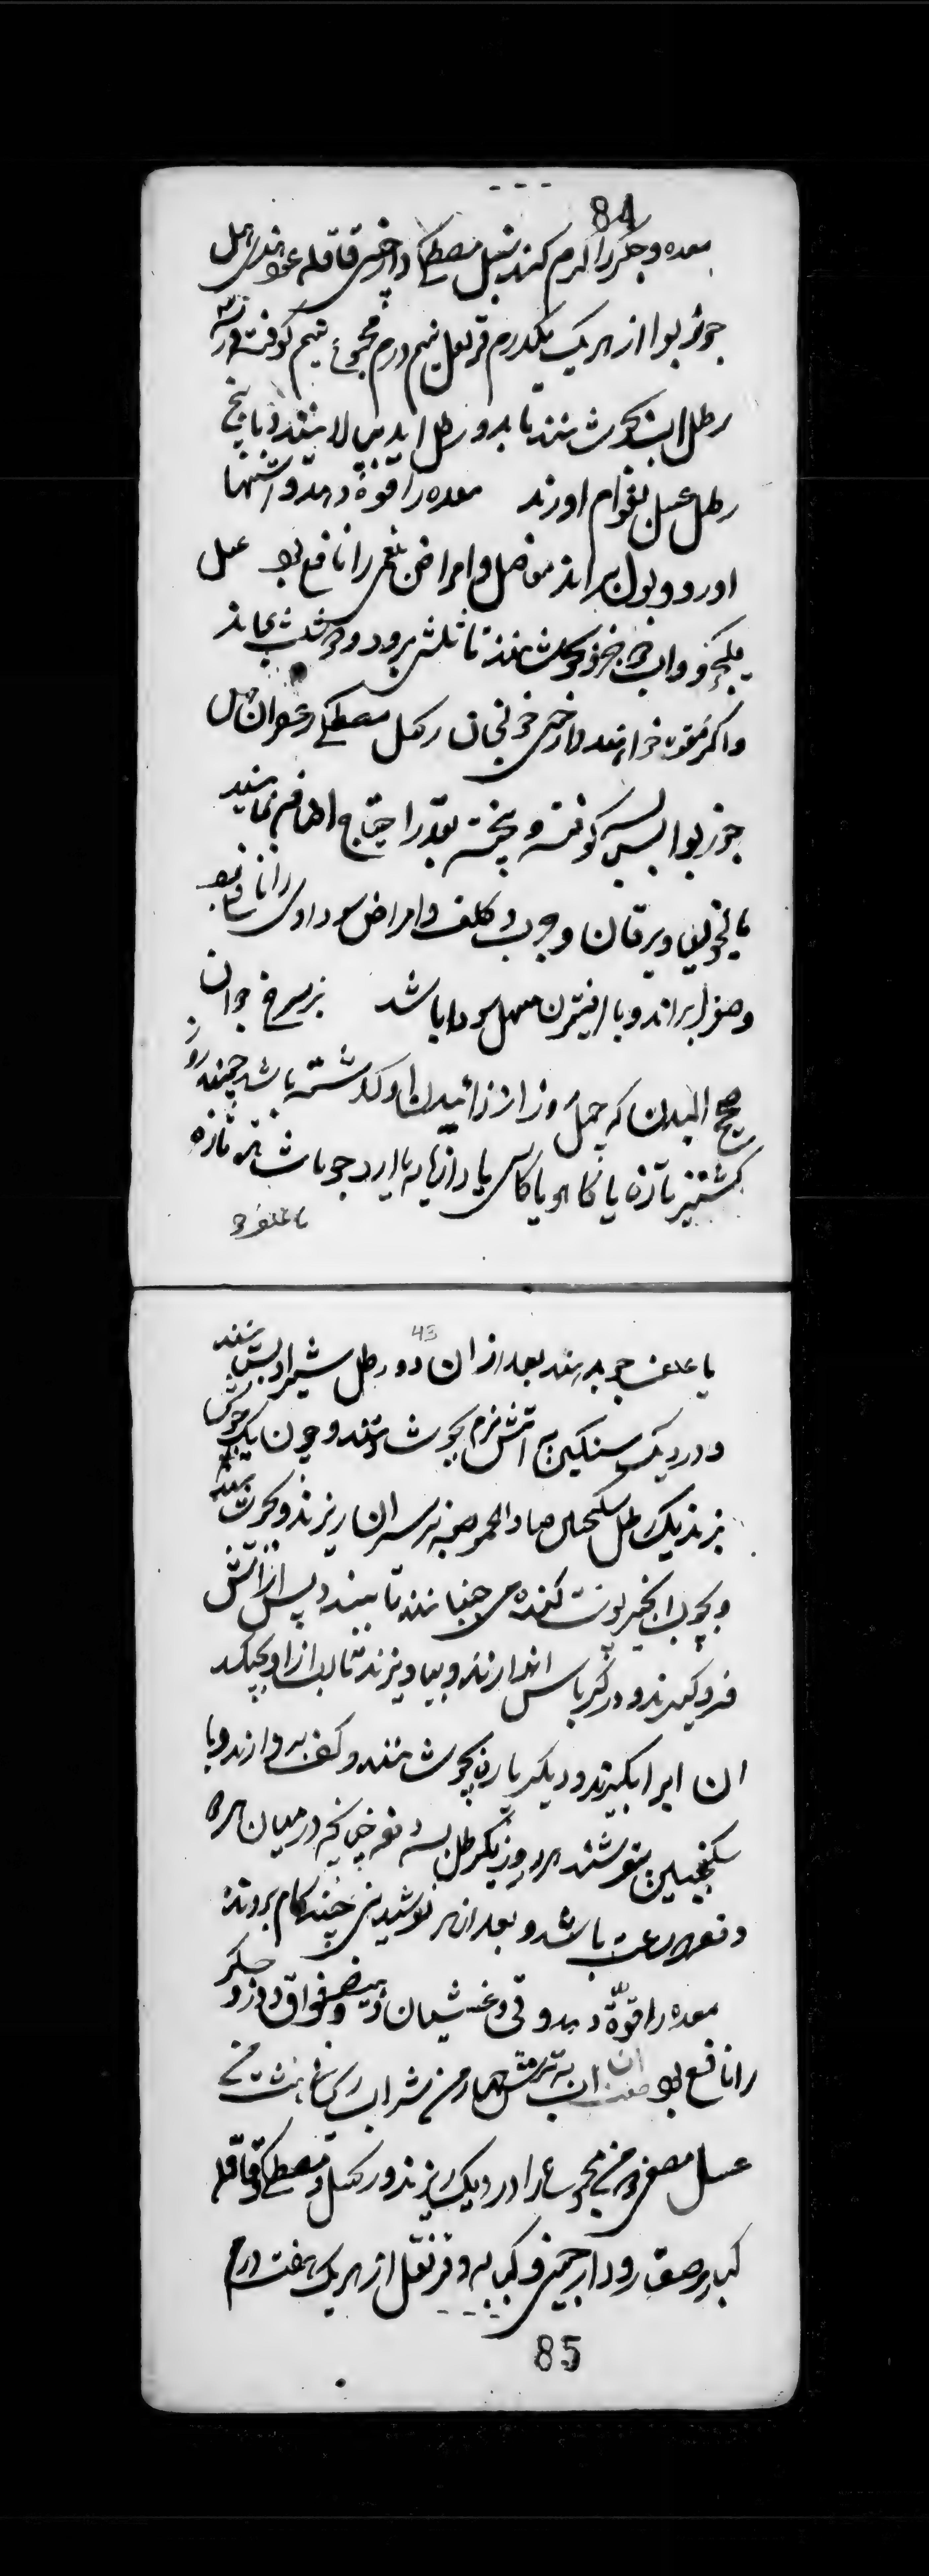 84
معده و جگر را گرم کند سنبل مصطکی دارچینی قاقله عود هندی هیل
جوز بوا از هر یک یکدرم قرنفل نیم درم مجموع نیم کوفته در سه
رطل اب بجوشانند تا بدو رطل اید پس بپالایند و با پنج
رطل عسل بقوام اورند معده را قوة دهد و اشتها
اورد و بول براند مفاصل و امراض بلغمی را نافع بود عسل
یکجزو و اب دو جزو بجوشانند تا ثلثش برود و دو ثلث بماند
و اگر مقوه خواهند دارچینی خولنجان زنجبیل مصطکی زعفران هیل
جوز بوا بسباسه کوفته و پخته بقدر احتیاج اضافه نمایند
مالیخولیا و یرقان و جرب و کلف و امراض سوداوی را نافع بود
و صفرا براند و با افتیمون مسهل سودا باشد بز سرخ جوان
صحیح البدن که چهل روز از زائیدن او گذشته باشد چند روز
کشنیز تازه یا کاهو یا کاسنی یا رازیانه یا ارد جو یا شاهتره تازه
یا علف جو
43
یا علف جو بدهند بعد از ان دو رطل شیر او بستانند
و در دیک سنگین به اتش نرم بجوشانند و چون یک جوش
بزند یک رطل سکنجبین صادق الحموضه بر سر ان ریزند و بجوشانند
و بچوب انجیر پوست کنده می جنبانند تا ببندد پس از اتش
فرو گیرند و در کرباس اندازند و بیاویزند تا اب از او بچکد
ان اب را بگیرند و دیگر باره بجوشانند و کف بردارند و با
سکنجبین بنوشند هر روز یکرطل بسه دفعه چنانچه در میان هر دو
دفعه ساعت باشد و بعد از هر نوشیدنی چند گام بروند
معده را قوّة دهد و قی و غثیان و هیضه و فواق و درد جگر
را نافع بود صفت ان اب به ترش چهار من شراب ریحانی شش من
عسل مصفی من مجموع را در دیک ریزند و زنجبیل و مصطکی و قاقله
کبار و صغار و دارچینی و کبابه و قرنفل از هر یک هفت درم
85